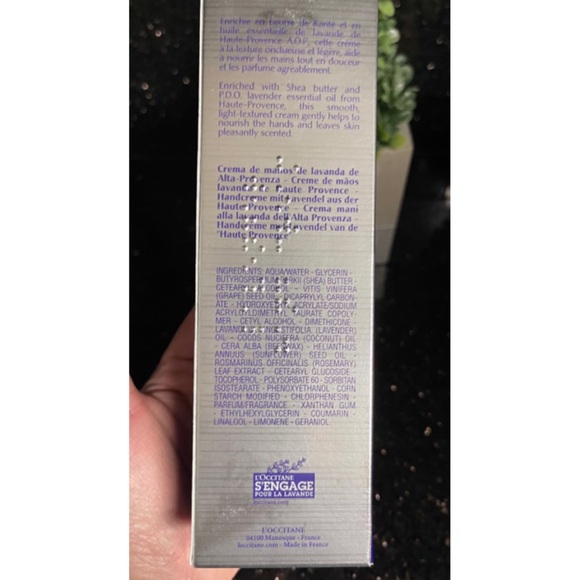 Enrichie en beurre de Karité et en
huile essentielle de lavande de
Haute-Provence A.O.P., cette crème
à la texture onctueuse et légère, aide
à nourrir les mains tout en douceur
et les parfume agréablement.
Enriched with Shea butter and
P.D.O. lavender essential oil from
Haute-Provence, this smooth,
light-textured cream gently helps to
nourish the hands and leaves skin
pleasantly scented.
Crema de manos de lavanda de
Alta-Provenza - Creme de mãos
lavanda de Haute Provence -
Handcreme mit Lavendel aus der
Haute Provence - Crema mani
alla lavanda dell'Alta Provenza -
Handcrème met lavendel van de
"Haute Provence"
INGREDIENTS: AQUA/WATER - GLYCERIN -
BUTYROSPERMUM PARKII (SHEA) BUTTER -
CETEARYL ALCOHOL - VITIS VINIFERA
(GRAPE) SEED OIL - DICAPRYLYL CARBON-
ATE - HYDROXYETHYL ACRYLATE/SODIUM
ACRYLOYLDIMETHYL TAURATE COPOLY-
MER - CETYL ALCOHOL - DIMETHICONE -
LAVANDULA ANGUSTIFOLIA (LAVENDER)
OIL - COCOS NUCIFERA (COCONUT) OIL
- CERA ALBA (BEESWAX) - HELIANTHUS
ANNUUS (SUNFLOWER) SEED OIL -
ROSMARINUS OFFICINALIS (ROSEMARY)
LEAF EXTRACT - CETEARYL GLUCOSIDE -
TOCOPHEROL - POLYSORBATE 60 - SORBITAN
ISOSTEARATE - PHENOXYETHANOL - CORN
STARCH MODIFIED - CHLORPHENESIN -
PARFUM/FRAGRANCE - XANTHAN GUM
- ETHYLHEXYLGLYCERIN - COUMARIN -
LINALOOL - LIMONENE - GERANIOL.
L'OCCITANE
S'ENGAGE
POUR LA LAVANDE
loccitane.com
L'OCCITANE
04100 Manosque - France
loccitane.com - Made in France